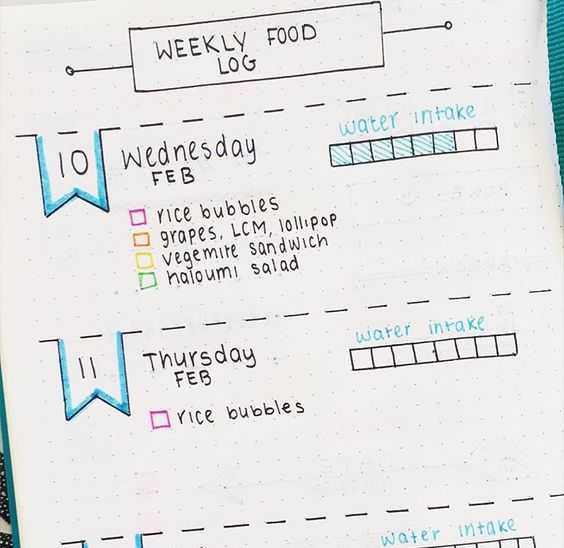 WEEKLY FOOD
LOG
water intake
10 Wednesday
FEB
rice bubbles
grapes, LCM, lollipop
vegemite sandwich
haloumi salad
water intake
11 Thursday
FEB
rice bubbles
water intake